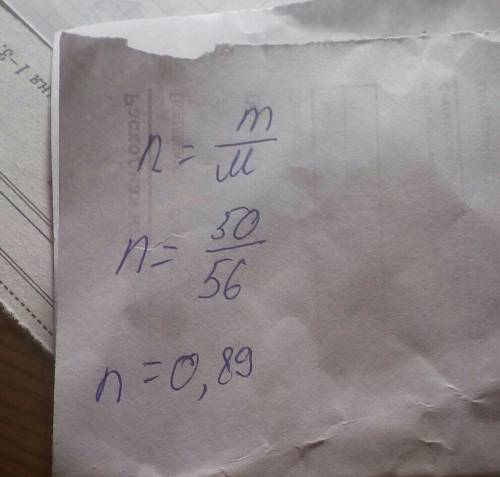 n = m/M
n = 50/56
n = 0,89